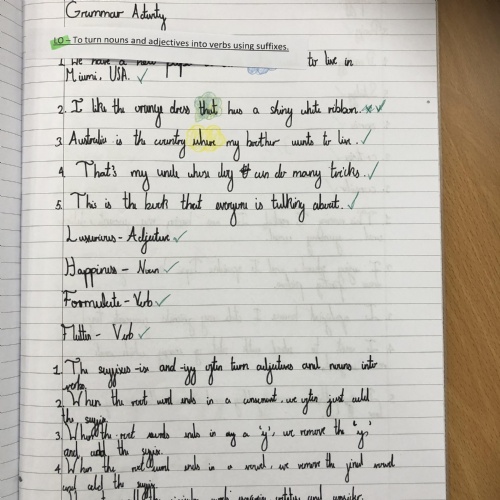 Grammar Activity
LO – To turn nouns and adjectives into verbs using suffixes.
1. We have a new to live in
Miami, USA.
2. I like the orange dress that has a shiny white ribbon.
3 Australia is the country where my brother wants to live.
4. That's my uncle whose dog can do many tricks.
5. This is the book that everyone is talking about.
Luxurious - Adjective
Happiness - Noun
Formulate - Verb
Flutter - Verb
1. The suffixes -ise and -ify often turn adjectives and nouns into
verbs.
2. When the root word ends in a consonant, we often just add
the suffix.
3. When the root ends in a 'y', we remove the 'y'
and add the suffix.
4. When the root word ends in a vowel, we remove the final vowel
and add the suffix.